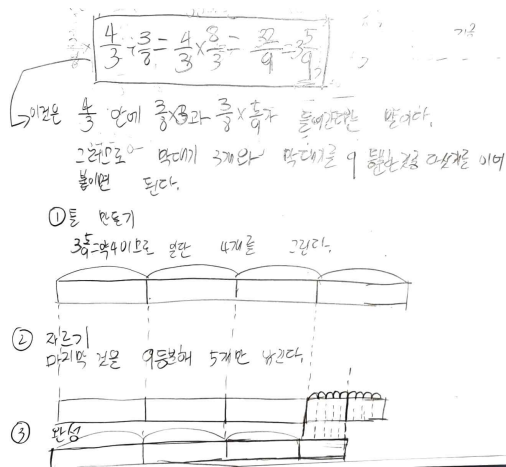 4/3 ÷ 3/8 = 4/3 × 8/3 = 32/9 = 3 5/9
이것은 4/3 안에 3/8×3과 3/8×5/9가 들어간다는 말이다.
그러므로 막대기 3개와 막대기를 9 등분한 것중 다섯개를 이어
붙이면 된다.
① 틀 만들기
3 5/9=약4이므로 일단 4개를 그린다.
② 자르기
마지막 것을 9등분해 5개만 남긴다.
③ 완성